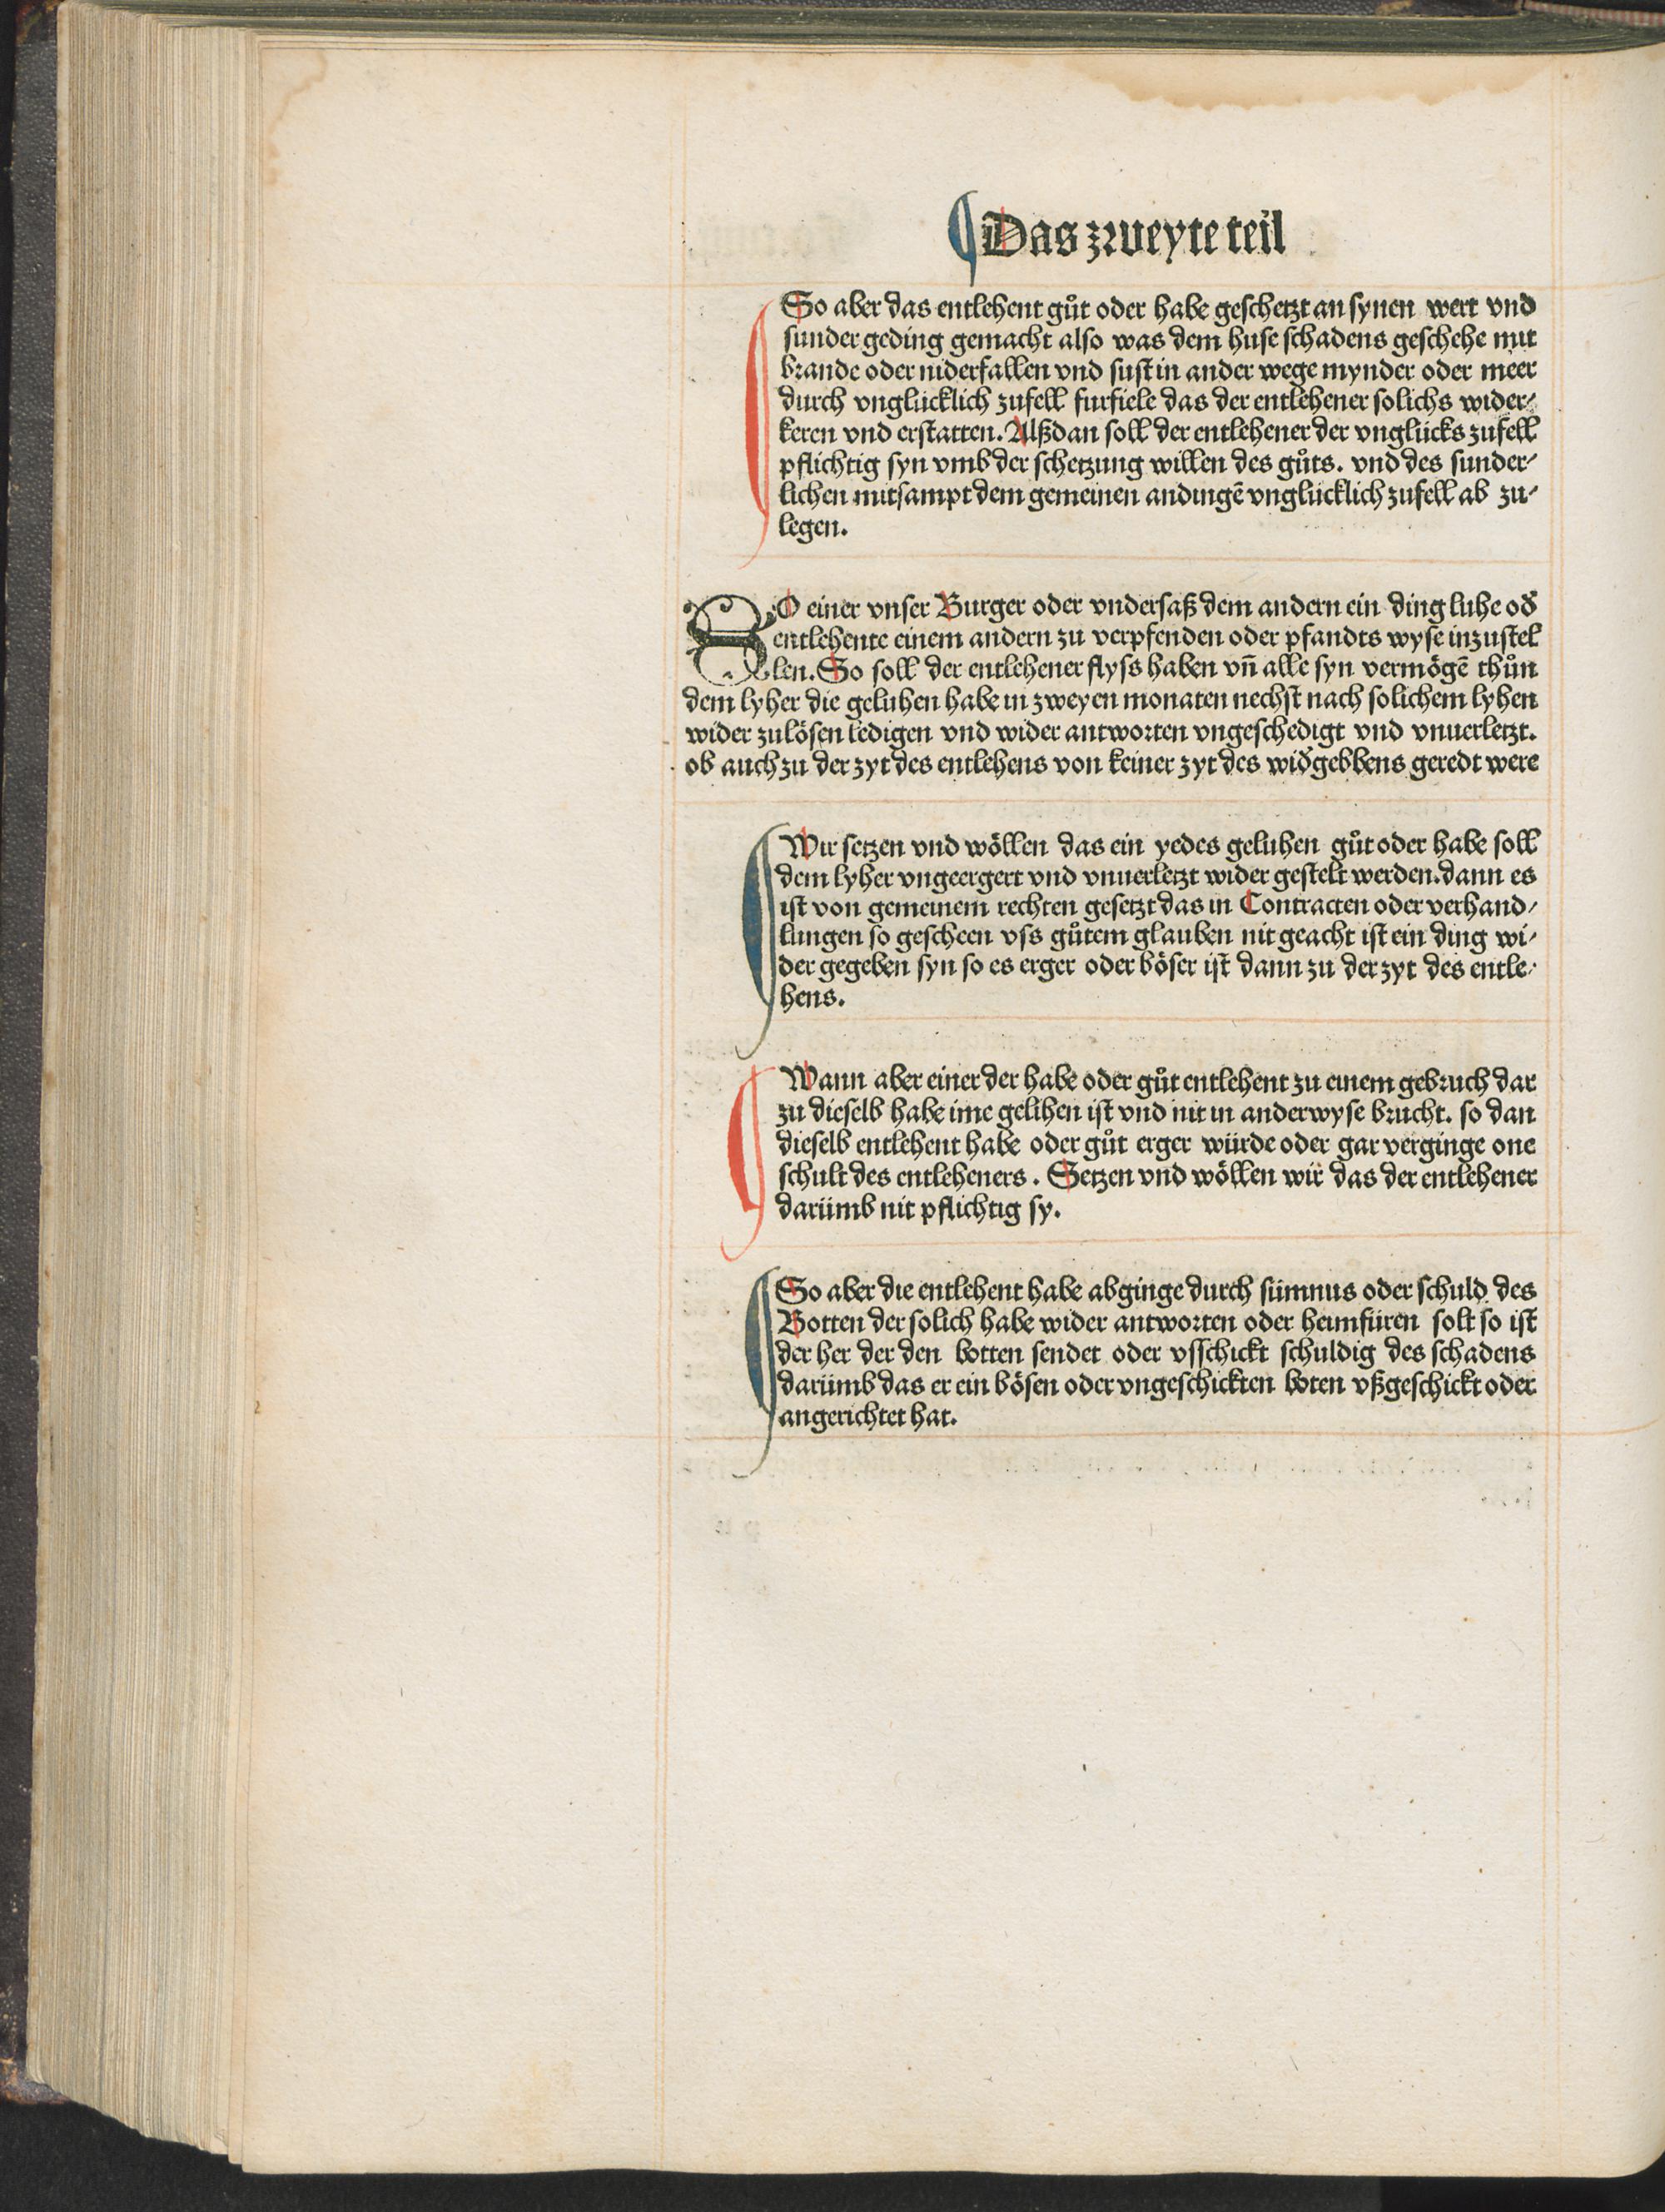 Das zweyte teil
So aber das entlehent gůt oder habe geschetzt an synen wert vnd
sunder geding gemacht also was dem huse schadens geschehe mit
brande oder niderfallen vnd sust in ander wege mynder oder meer
durch vnglücklich zufell furfiele das der entlehener solichs wider⸗
keren vnd erstatten. Alßdan soll der entlehener der vnglücks zufell
pflichtig syn vmb der schetzung willen des gůts. vnd des sunder⸗
lichen mitsampt dem gemeinen andingē vnglücklich zufell ab zu⸗
legen.
SO einer vnser Burger oder vndersaß dem andern ein ding luhe od̓
entlehente einem andern zu verpfenden oder pfandts wyse inzustel
len. So soll der entlehener flyss haben vn̄ alle syn vermögē thůn
dem lyher die geluhen habe in zweyen monaten nechst nach solichem lyhen
wider zulösen ledigen vnd wider antworten vngeschedigt vnd vnuerletzt.
ob auch zu der zyt des entlehens von keiner zyt des wid̓gebbens geredt were
Wir setzen vnd wöllen das ein yedes geluhen gůt oder habe soll
dem lyher vngeergert vnd vnuerletzt wider gestelt werden. dann es
ist von gemeinem rechten gesetzt das in Contracten oder verhand⸗
lungen so gescheen vss gůtem glauben nit geacht ist ein ding wi⸗
der gegeben syn so es erger oder böser ist dann zu der zyt des entle⸗
hens.
Wann aber einer der habe oder gůt entlehent zu einem gebruch dar
zu dieselb habe ime gelihen ist vnd nit in anderwyse brucht. so dan
dieselb entlehent habe oder gůt erger würde oder gar verginge one
schult des entleheners. Setzen vnd wöllen wir das der entlehener
darümb nit pflichtig sy.
So aber die entlehent habe abginge durch sümnus oder schuld des
Botten der solich habe wider antworten oder heimfüren solt so ist
der her der den botten sendet oder vsschickt schuldig des schadens
darümb das er ein bösen oder vngeschickten boten vßgeschickt oder
angerichtet hat.